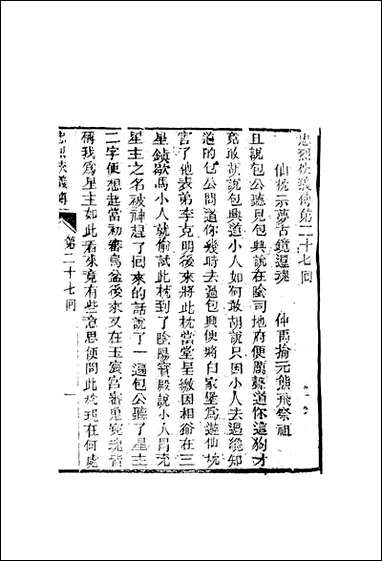 忠烈俠義傳第二十七回
仙枕示夢古鏡還魂　仲禹掄元熊飛祭祖
且說包公聽見包興說在陰司地府便厲聲道你這狗才
竟敢胡說包興道小人如何敢胡說只因小人去過纔知
道的包公問道你幾時去過包興便將白家堡爲遊仙枕
害了他表弟李克明後來將此枕當堂呈繳因相爺在三
星鎮歇馬小人就偷試此枕到了陰陽寶殿說小人冒充
星主之名被神趕了回來的話說了一遍包公聽了星主
二字便想起當初審烏盆後來又在玉宸宮審鬼冤魂皆
稱我爲星主如此看來竟有些意思便問此枕現在何處
忠烈俠義傳
第二十七回
一